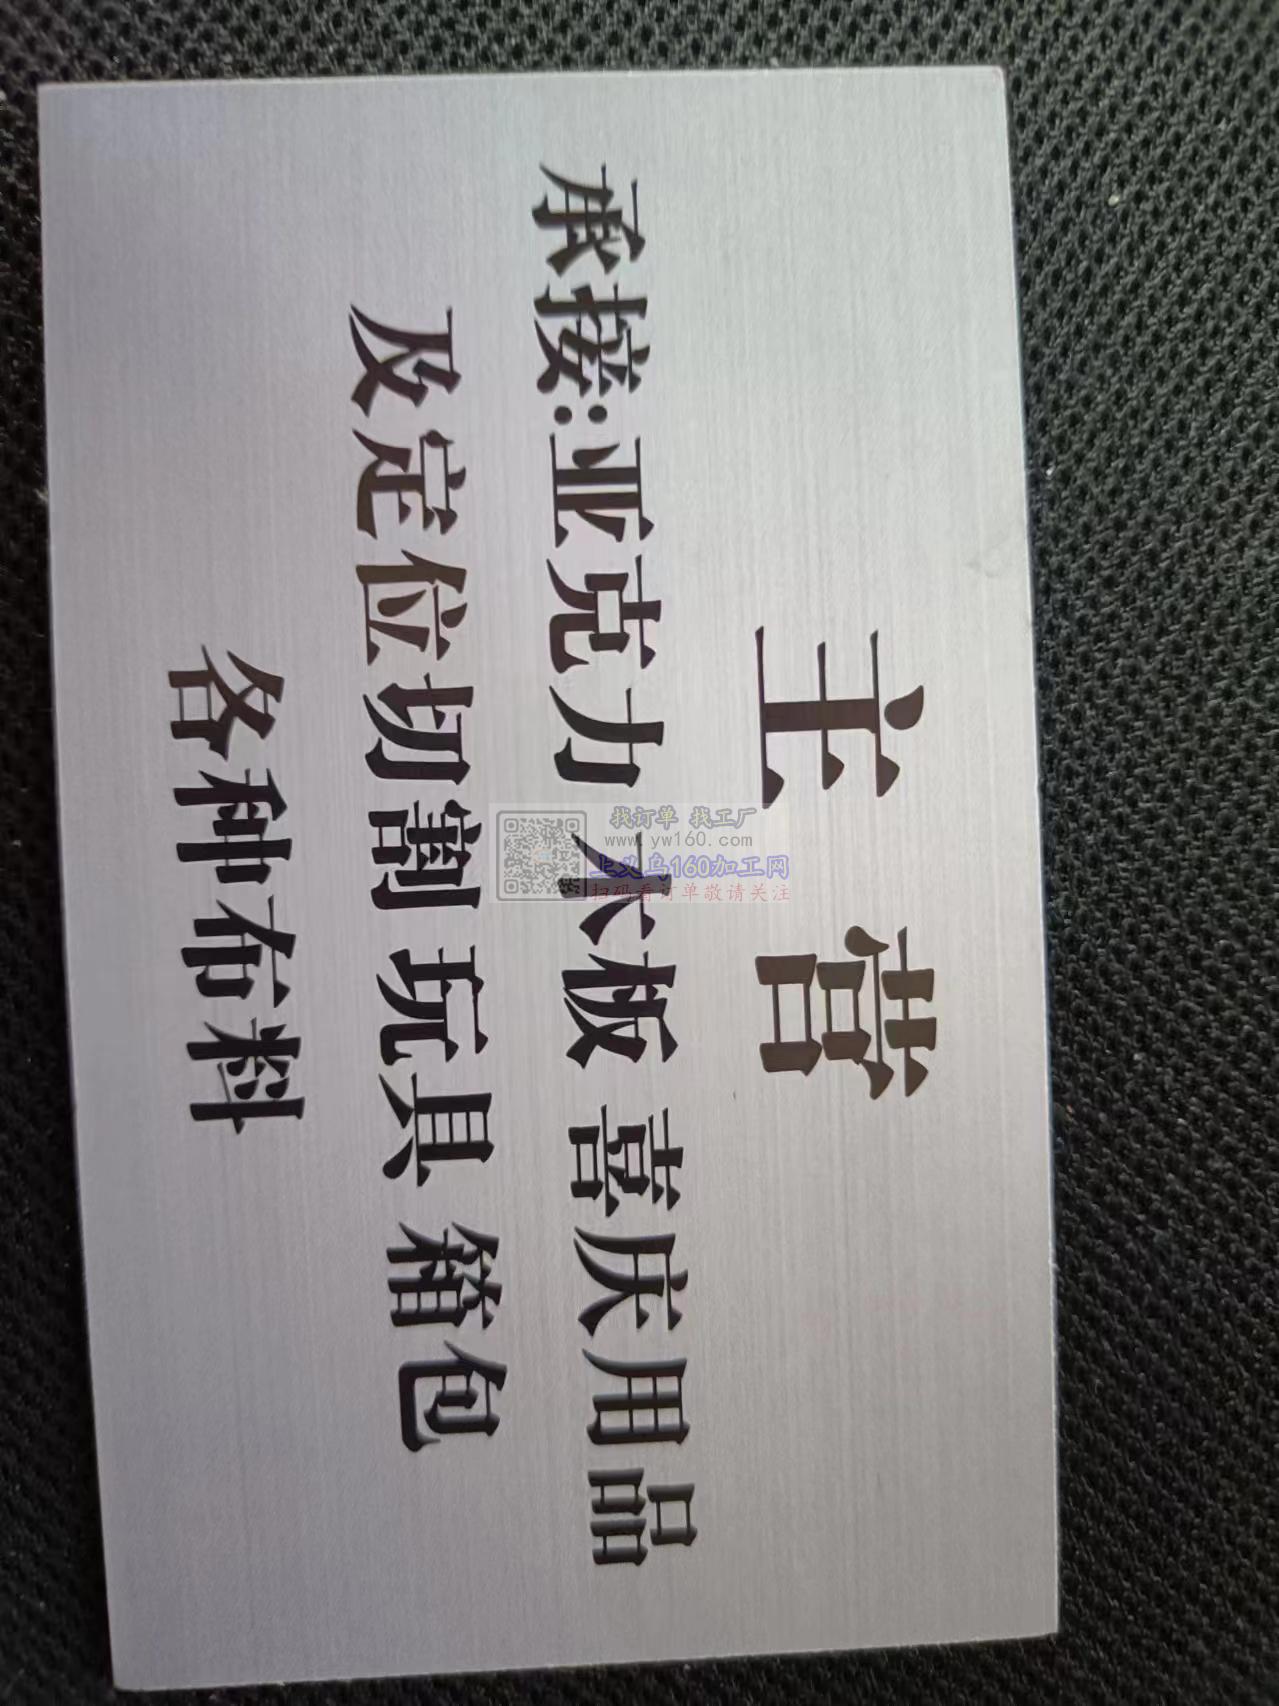 主营
承接:亚克力 木板 喜庆用品
及定位切割 玩具 箱包
各种布料
找订单 找工厂
www.yw160.com
上义乌160加工网
扫码看订单敬请关注